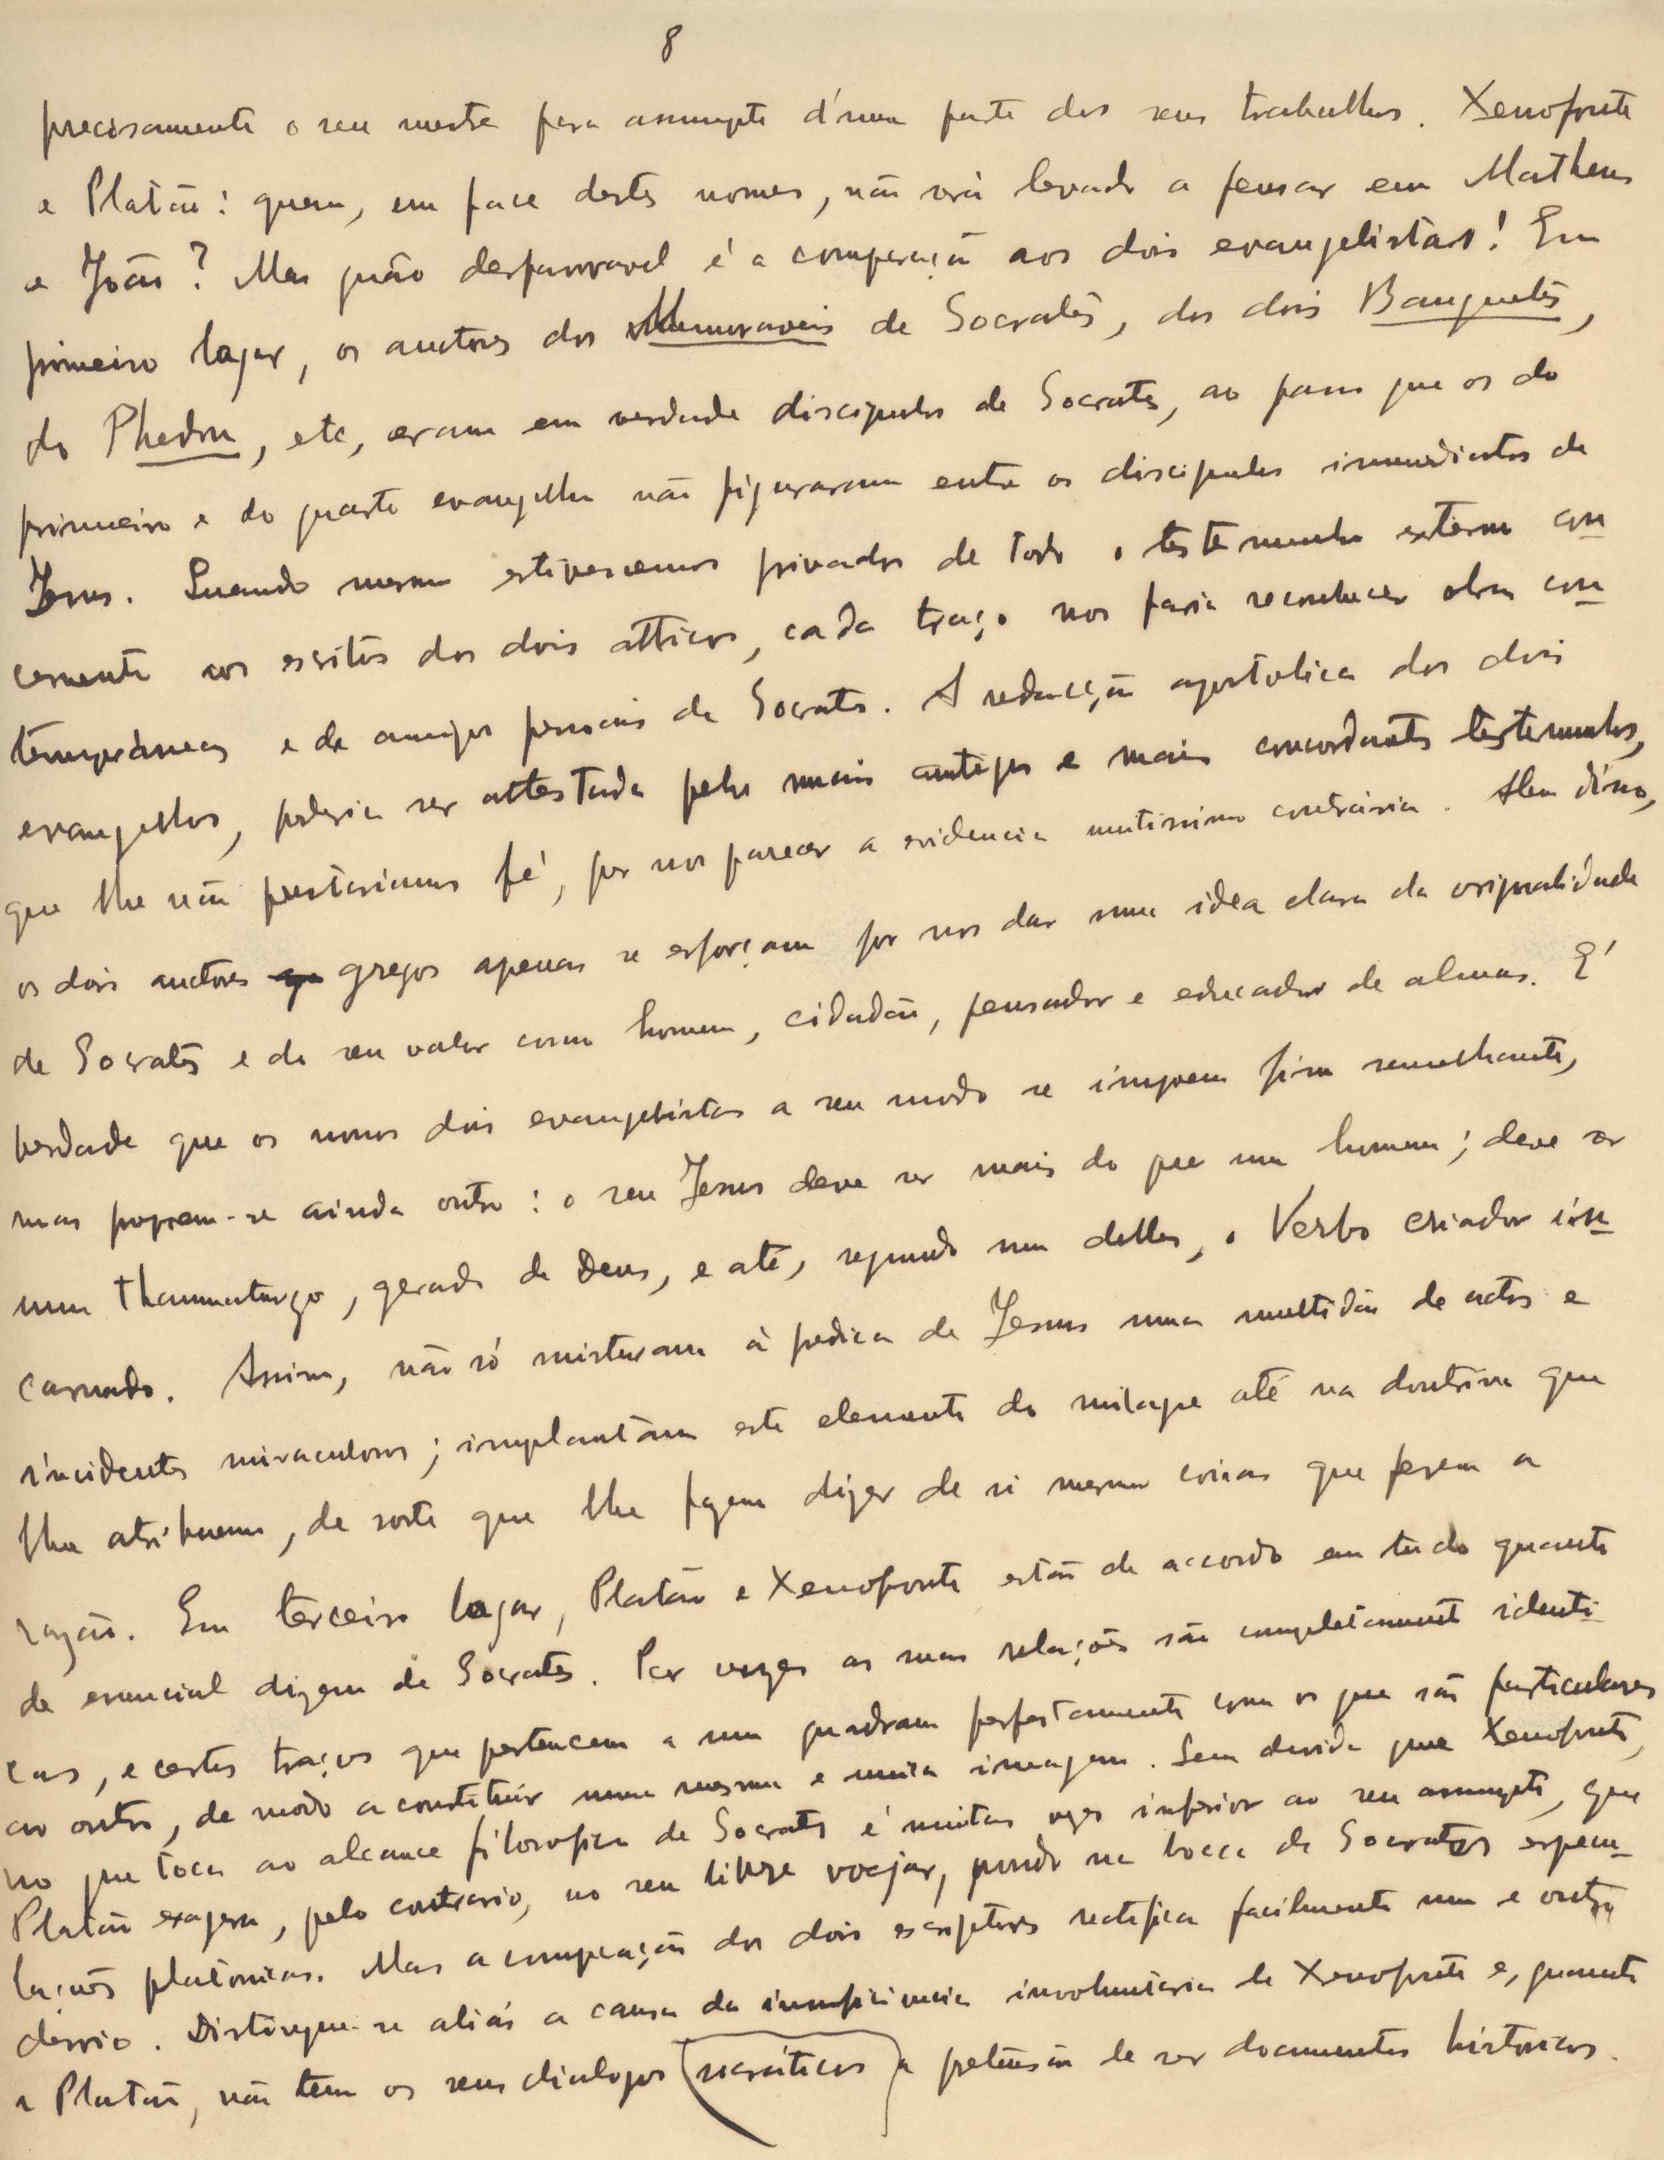 8
precisamente o seu mestre para assumpto d'uma parte dos seus trabalhos. Xenofonte
e Platão: quem, em face destes nomes, não será levado a pensar em Matheus
e João? Mas quão desfavoravel é a comparação aos dois evangelistas! Em
primeiro lugar, os auctores dos Memoraveis de Socrates, dos dois Banquetes,
do Phedon, etc, eram em verdade discipulos de Socrates, ao passo que os do
primeiro e do quarto evangelho não figuraram entre os discipulos immediatos de
Jesus. Quando mesmo estivessemos privados de todo o testemunho externo con
cernente aos escritos dos dois atticos, cada traço nos faria reconhecer obra con
temporaneas e de amigos pessoais de Socrates. A redacção apostolica dos dois
evangelhos, poderia ser attestada pelos mais antigos e mais concordantes testemunhos,
que lhe não prestariamos fé, por nos parecer a evidencia muitissimo contrária. Alem disso,
os dois auctores gregos apenas se esforçam por nos dar uma idea clara da originalidade
de Socrates e do seu valor como homem, cidadão, pensador e educador de almas. E'
verdade que os nossos dois evangelistas a seu modo se impoem fim semelhante,
mas propoem-se ainda outro: o seu Jesus deve ser mais do que um homem; deve ser
um thaumaturgo, gerado de Deus, e até, segundo um delles, o Verbo criador in
carnado. Assim, não só misturam á prédica de Jesus uma multidão de actos e
incidentes miraculosos; implantam este elemento do milagre até na doutrina que
lhe atribuem, de sorte que lhe fazem dizer de si mesmo coisas que ferem a
razão. Em terceiro lugar, Platão e Xenofonte estão de accordo em tudo quanto
de essencial dizem de Socrates. Por vezes as suas relações são completamente identi
cas, e certos traços que pertencem a um quadram perfeitamente com os que são particulares
ao outro, de modo a constituir uma mesma e unica imagem. Sem duvida que Xenofonte,
no que toca ao alcance filosofico de Socrates é muitas vezes inferior ao seu assumpto, que
Platão exagera, pelo contrario, no seu livre voejar, pondo na bocca de Socrates especu
lações platonicas. Mas a comparação dos dois escriptores rectifica facilmente um e outro
desvio. Distingue-se aliás a causa da insuficiencia involuntaria de Xenofonte e, quanto
a Platão, não tem os seus dialogos socráticos a pretensão de ser documentos historicos.